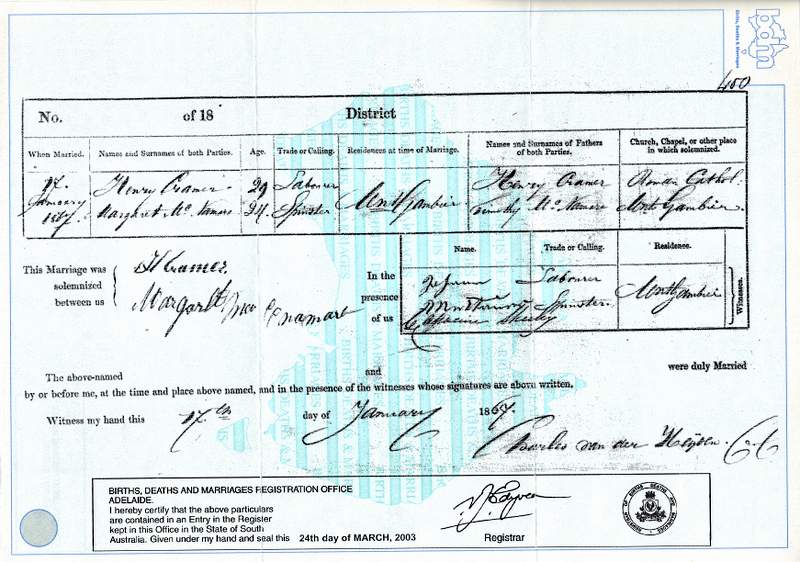 bdm
Births, Deaths & Marriages
450
No. of 18 District
When Married. Names and Surnames of both Parties. Age. Trade or Calling. Residences at time of Marriage. Names and Surnames of Fathers of both Parties. Church, Chapel, or other place in which solemnized.
17 Henry Cramer 29 Labourer Mnt Gambier Henry Cramer Roman Cathol.
January Margaret Mc Namara 24 Spinster Timothy Mc Namara Mnt Gambier
1867
Name. Trade or Calling. Residence.
This Marriage was solemnized between us
H Cramer
Margaret
In the presence of us
Labourer Mnt Gambier
Spinster
Catherine
Witnesses.
and were duly Married
The above-named
by or before me, at the time and place above named, and in the presence of the witnesses whose signatures are above written.
Witness my hand this 17th day of January 1867.
Charles van der Heyden
BIRTHS, DEATHS AND MARRIAGES REGISTRATION OFFICE
ADELAIDE.
I hereby certify that the above particulars
are contained in an Entry in the Register
kept in this Office in the State of South
Australia. Given under my hand and seal this 24th day of MARCH, 2003
Registrar